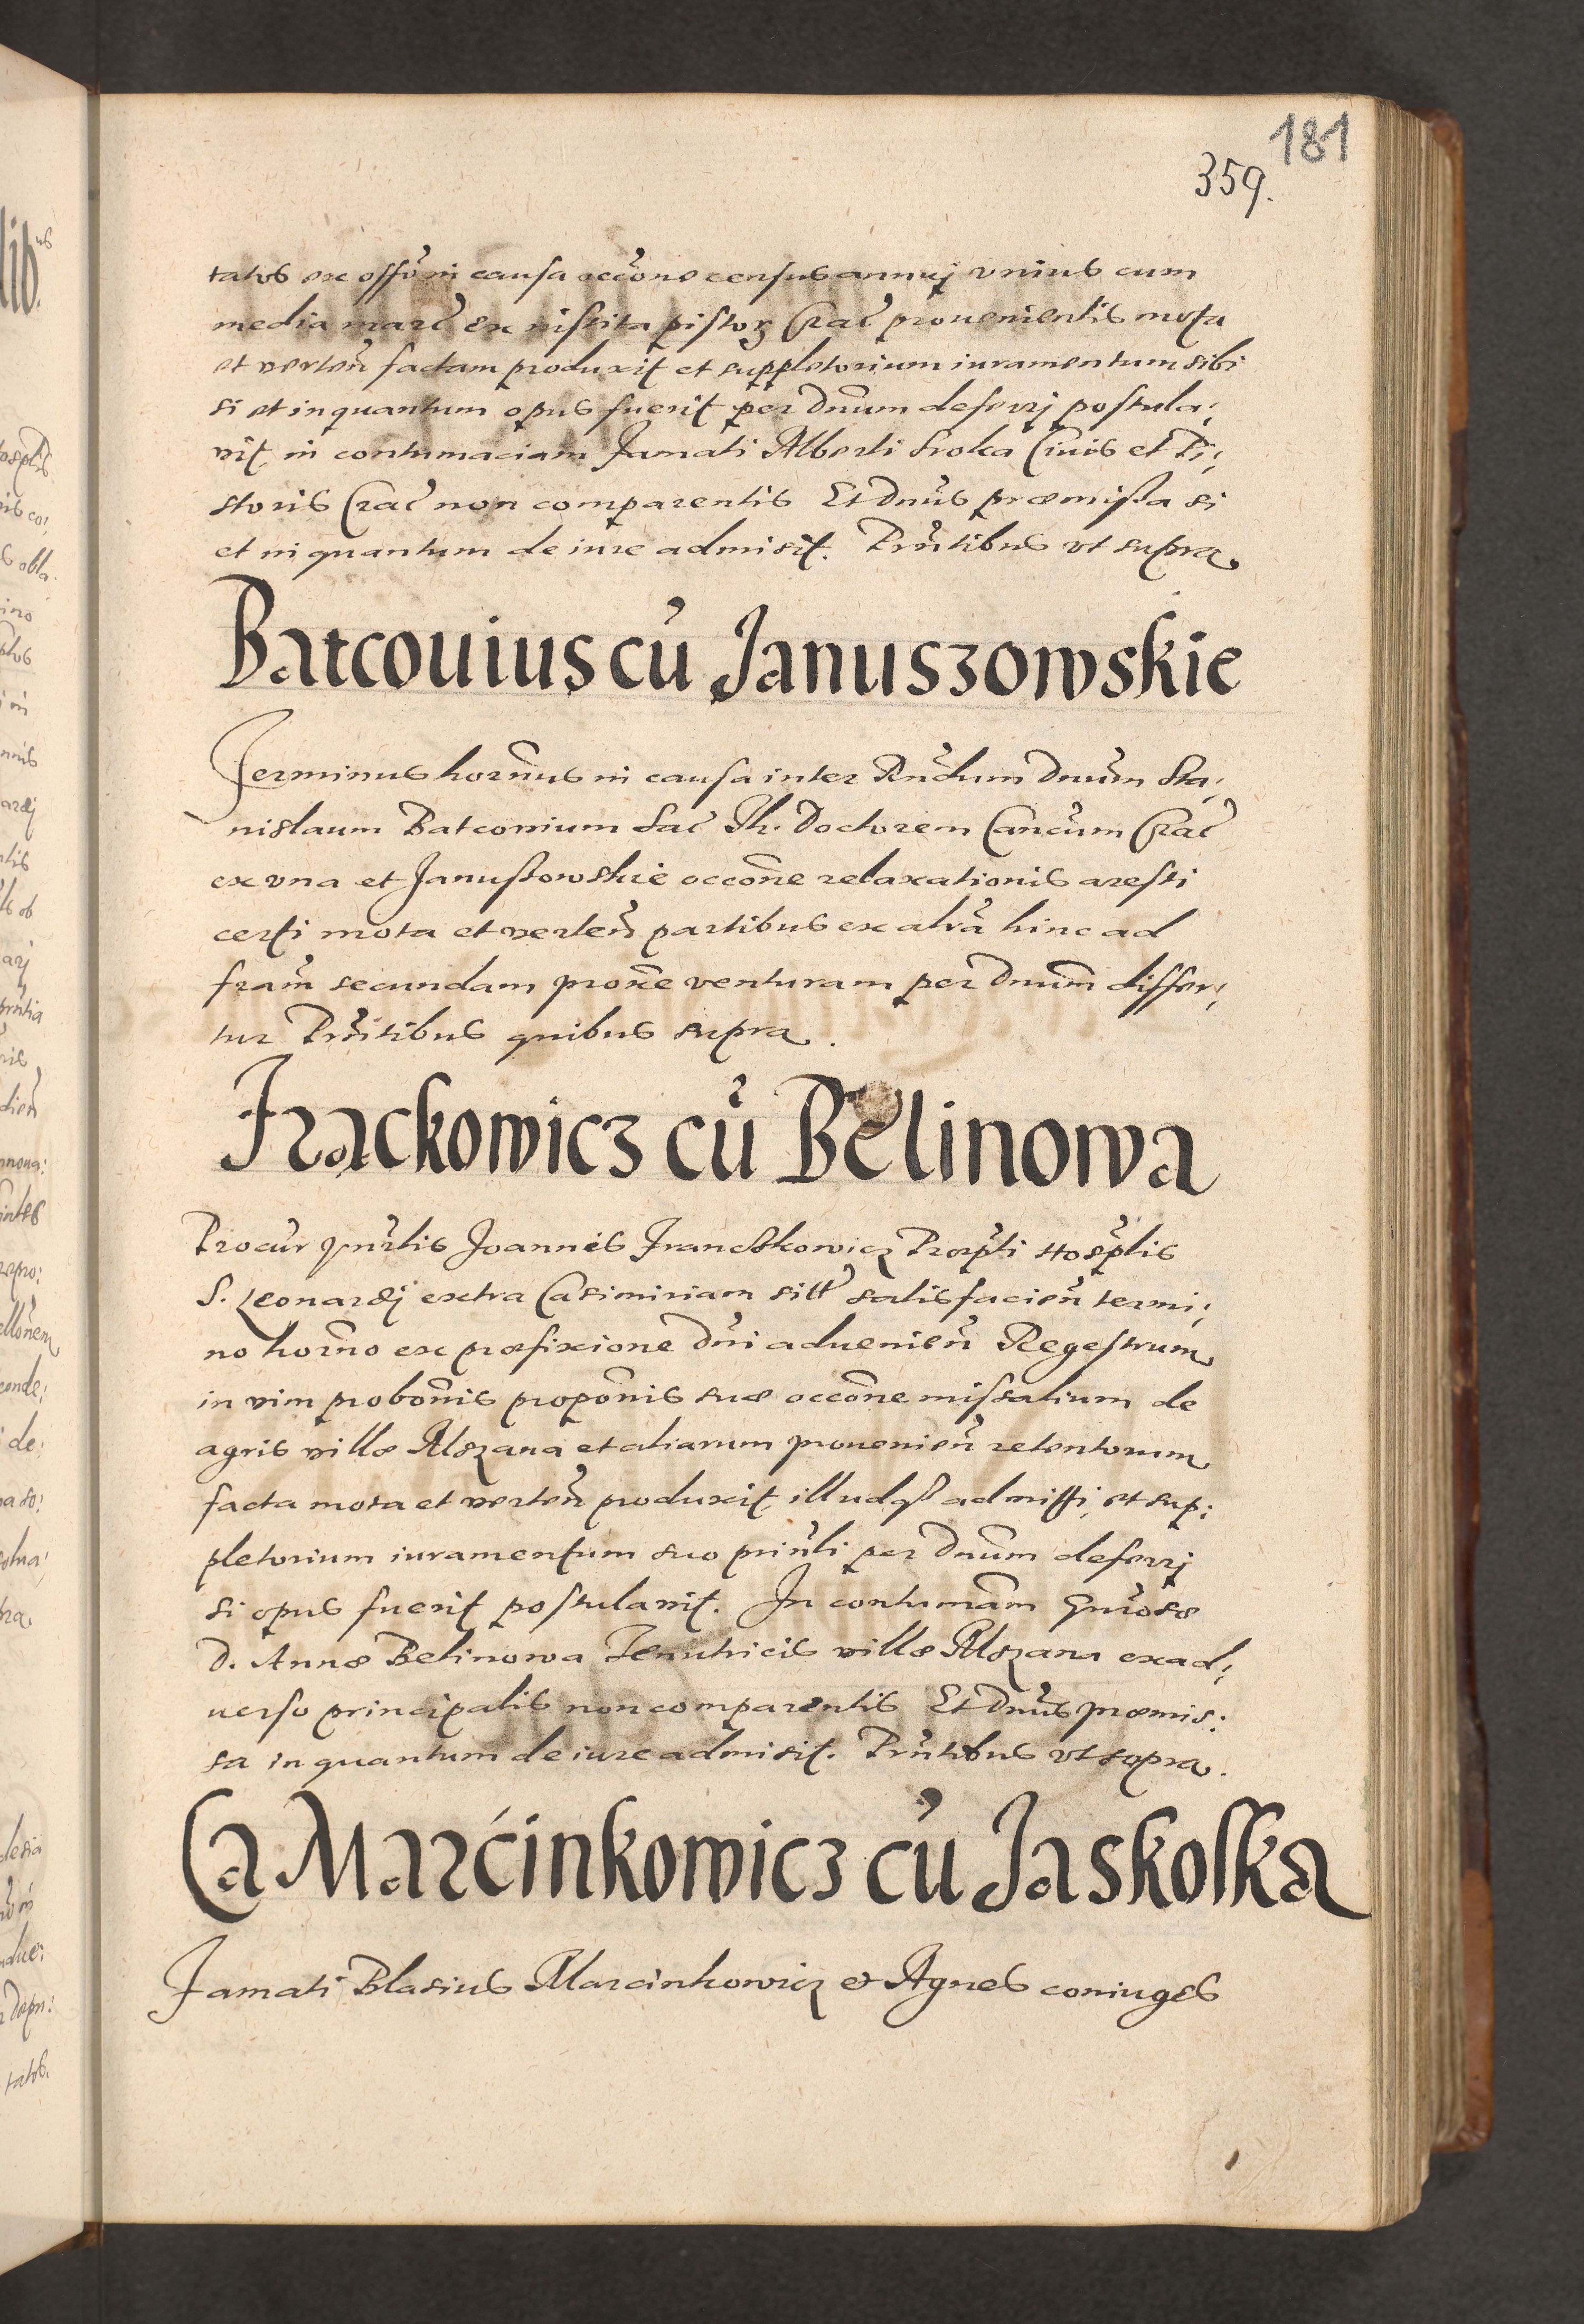 181
359.
tatus ex offo in causa occone census annuj vnius cum
media marc ex instita pistorz Crac prouenientis mota
et verten factam produxit et suppletorium iuramentum sibi
si et inquantum opus fuerit per Dnum deferrj postula;
uit in contumaciam famati Alberti Sroka Ciuis et Pi;
storis Crac non comparentis Et Dnus præmissa si
et in quantum de iure admisit. Pntibus vt supra
Batcouius cu Januszowskie
Terminus hornus in causa inter Rndum Dnum Sta;
nislaum Batcouium Sac Th. Doctorem Cancum Crac
ex vna et Janussowskie occone relaxationis aresti
certi mota et verten partibus ex altra hinc ad
fram secundam proxe venturam per Dnum differ;
tur Pntibus quibus supra.
Frąckowicz cu Belinowa
Procur hnrlis Joannis Franckowicz Præpti Hosplis
S. Leonardj extra Casimiriam sitt satisfacien termi;
no horno ex præfixione Dni aduenien Regestrum
in vim probonis proponis suæ occone missalium de
agris villæ Mszana et aliarum prouenien retentorum
facta mota et verten produxit illudq admitti, et sup;
pletorium iuramentum suo prinli per Dnum deferrj
si opus fuerit postulauit. In contumam Gnrosæ
D. Annæ Belinowa Tenutricis villæ Mszana ex ad;
uerso principalis non comparentis Et Dnus præmis;
sa in quantum de iure admisit. Pntibus vt supra.
Ca Marćinkowicz cu Jaskolka
Famati Blasius Marcinkowicz et Agnes coniuges